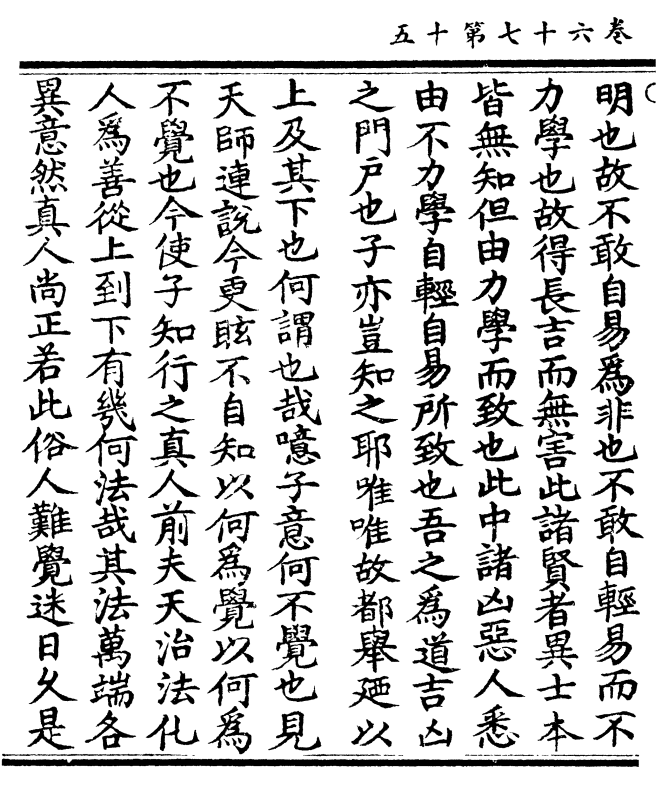 卷六十七第十五
明也故不敢自易爲非也不敢自輕易而不
力學也故得長吉而無害此諸賢者異士本
皆無知但由力學而致也此中諸凶惡人悉
由不力學自輕自易所致也吾之爲道吉凶
之門户也子亦豈知之耶唯唯故都舉廼以
上及其下也何謂也哉噫子意何不覺也見
天師連說今更眩不自知以何爲覺以何爲
不覺也今使子知行之真人前夫天治法化
人爲善從上到下有幾何法哉其法萬端各
異意然真人尚正若此俗人難覺迷日久是